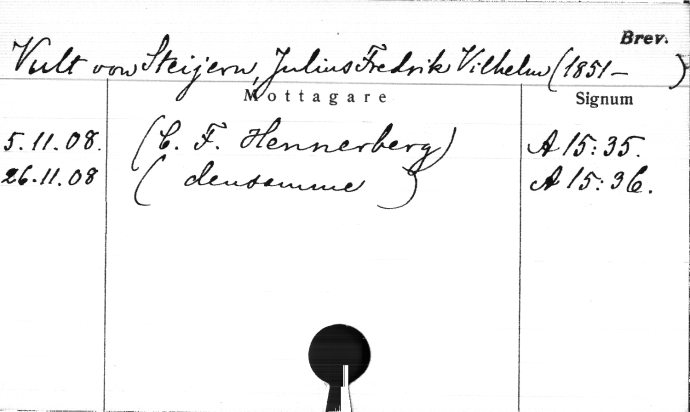 Brev.
Vult von Steijern, Julius Fredrik Vilhelm (1851– )
Mottagare Signum
5.11.08. (C. F. Hennerberg) A 15:35.
26.11.08 (densamme) A 15:36.